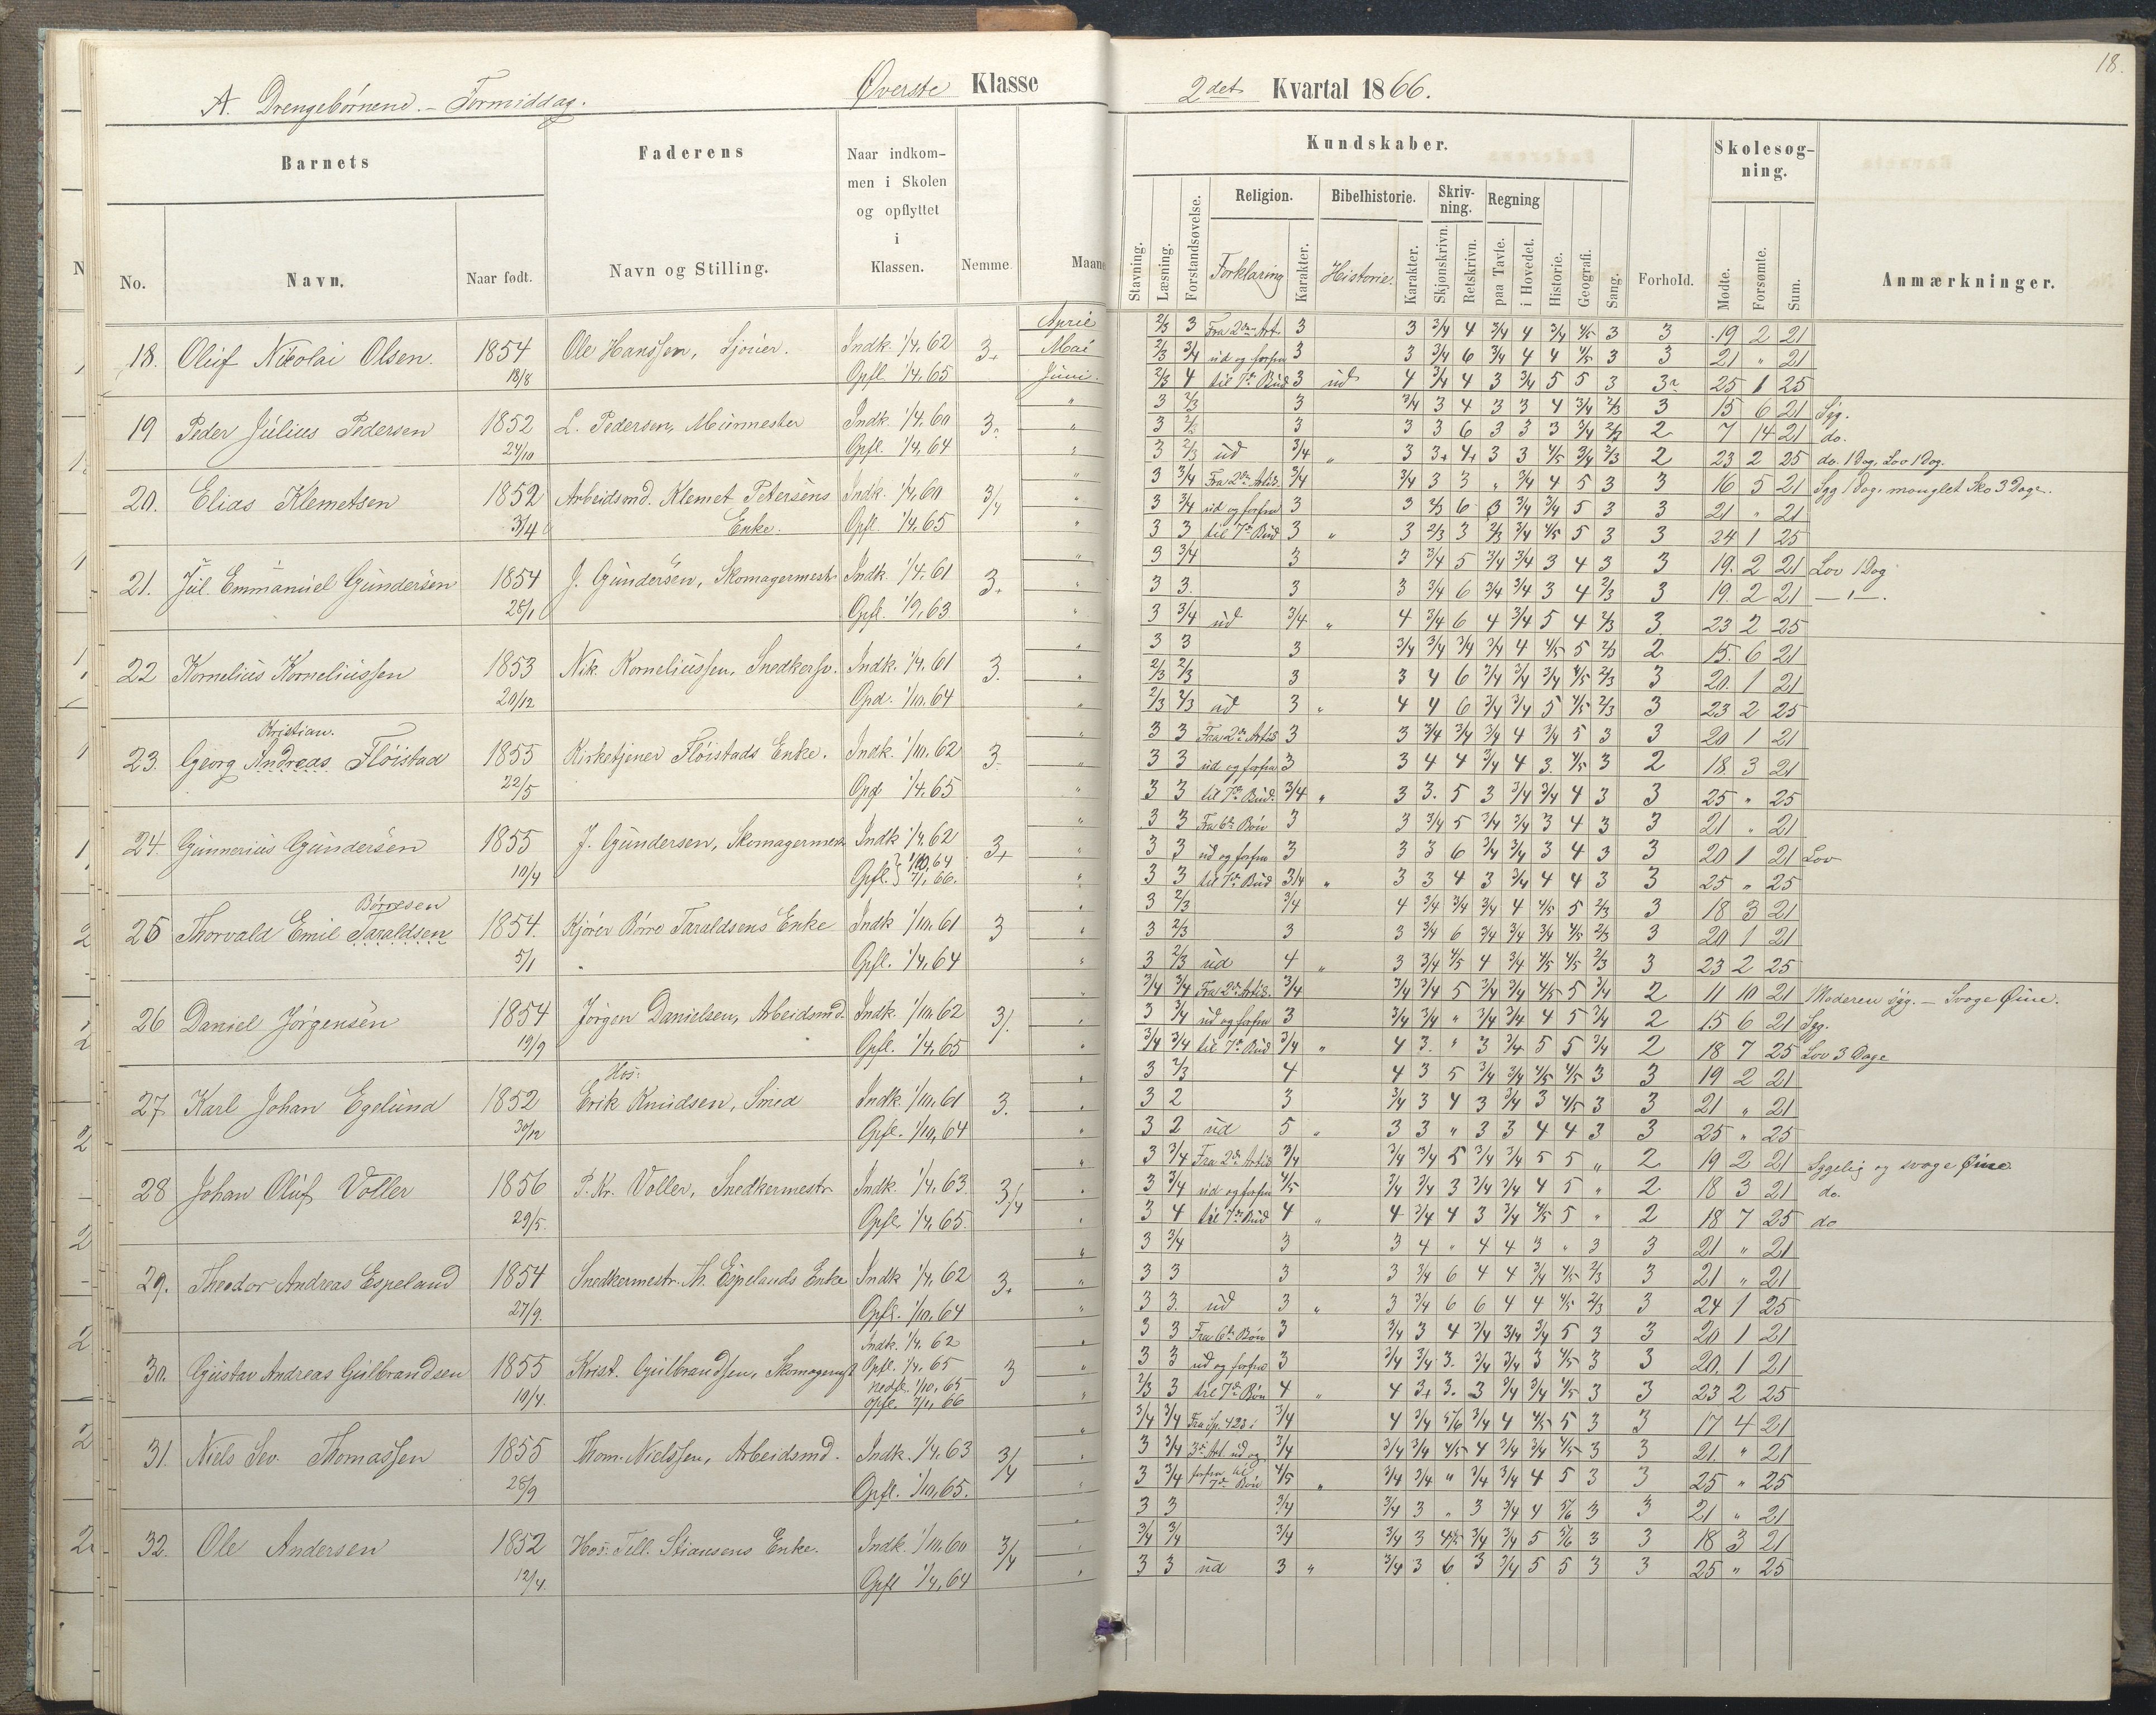 18.
A. Drengebørnene. - Formiddag. Øverste Klasse 2det Kvartal 1866.
Barnets Faderens Naar indkommen i Skolen og opflyttet i Klassen. Nemme. Maane
Kundskaber. Skolesøgning.
Religion. Bibelhistorie. Skrivning. Regning
No. Navn. Naar født. Navn og Stilling.
Stavning. Læsning. Forstandsøvelse. Forklaring Karakter. Historie. Karakter. Skjønskrivn. Retskrivn. paa Tavle. i Hovedet. Historie. Geografi. Sang. Forhold. Mødte. Forsømte. Sum. Anmærkninger.
18. Oluf Nikolai Olsen. 1854 18/8 Ole Hanssen, Sjouer. Indk. 1/4, 62 Opfl. 1/4, 65 3+
April 2/3 3 Fra 2den Art. 3 3 3/4 4 3/4 4 3/4 4/5 3 3 19 2 21
Mai 2/3 3/4 ud og forfra 3 3 3/4 6 3/4 4 4 4/5 3 3 21 " 21
Juni. 2/3 4 til 7de Bud 3 ud 4 3/4 4 3 3/4 5 5 3 25 1 25
19 Peder Julius Pedersen 1852 24/10 L. Pedersen, Murmester Indk. 1/4, 60 Opfl. 1/4, 64
3 2/3 3 3/4 3 4 3 3 4 3/4 2/3 3 15 6 21 Syg.
3 3 3 6 3 3 3 3/4 2/3 2 7 14 21 do.
3 2/3 ud 3/4 " 3 3+ 4+ 3 3 4/5 3/4 2/3 2 23 2 25 do. 1 Dag, Lov 1 Dag.
20. Elias Klemetsen 1852 3/4 Arbeidsmd. Klemet Petersens Enke. Indk. 1/4, 60 Opfl. 1/4, 65 3/4
3 3/4 Fra 2den Artik. 3/4 3/4 3 3 " 3/4 4 5 3 3 16 5 21 Syg 1 Dag, manglet Sko 3 Dage.
3 3/4 ud og forfra 3 3 2/3 6 3 3/4 3/4 5 3 3 21 " 21
3 3 til 7de Bud 3 " 3 2/3 3 2/3 3/4 4/5 5 3 3 24 1 25
21. Jul. Emmanuel Gundersen 1854 28/1 J. Gundersen, Skomagermestr. Indk. 1/4, 61 Opfl. 1/9, 63 3+
3 3/4 3 3 3/4 5 3/4 3/4 3 4 3 3 19. 2 21 Lov 1 Dag
3 3. 3 3 3/4 6 3/4 3/4 3 4 2/3 3 19. 2 21 — " —.
3 3/4 ud 3/4 " 4 3/4 6 4 3/4 5 4 2/3 3 23 2 25
22 Kornelius Korneliussen 1853 20/12 Nik. Korneliussen, Snedkersv. Indk. 1/4, 61 Opd. 1/10, 64 3.
3 3 3 3/4 3/4 3/4 3/4 4 4/5 5 2/3 2 15. 6 21
2/3 2/3 3 3 4 6 3/4 3/4 3/4 4/5 2/3 3 20. 1 21
2/3 2/3 ud 3 " 4 4 6 3/4 3/4 5 4/5 2/3 3 23 2 25
23. Georg Andreas Kristian. Fløistad 1855 22/5 Kirketjener Fløistads Enke. Indk. 1/10, 62 Opd 1/4, 65 3.
3 3 Fra 2den Artik 3 3 3/4 3/4 3/4 4 3/4 5 3 3 20 1 21
3 3 ud og forfra 3 3 4 4 3/4 4 3. 4/5 3 2 18. 3 21
3 3 til 7de Bud. 3/4 " 3 3. 5 3 3/4 3/4 4 3 3 25 " 25
24. Gunnerius Gundersen 1855 10/4 J. Gundersen, Skomagermestr. Indk 1/4, 62 Opfl. 1/10, 64 7/1, 66. 3+
3 3 Fra 6te Bøn 3 3 3/4 5 3/4 3/4 3 4 3 3 21 " 21
3 3 ud og forfra 3 3 3 6 3/4 3/4 3 4 3 3 20 1 21 Lov
3 3 til 7de Bud 3/4 " 3 3 4 3 3/4 4 4 3 3 25 " 25
25 Thorvald Emil Taraldsen Børresen 1854. 5/1 Kjører Børre Taraldsens Enke Indk 1/10, 61 Opfl. 1/4, 64 3
3 2/3 3/4 4 3/4 3/4 3/4 4 4/5 5 2/3 3 18 3 21
3 2/3 3 3 3/4 6 3/4 3/4 3/4 4/5 2/3 3 20 1 21
3 2/3 ud 4 " 3 3/4 4/5 4 3/4 4/5 4/5 2/3 3 23 2 25
26 Daniel Jørgensen 1854 19/9 Jørgen Danielsen, Arbeidsmd. Indk. 1/10, 62 Opfl. 1/4, 65
3/4 3/4 Fra 2den Artik. 3/4 3/4 3/4 5 3/4 3/4 4/5 5 3/4 2 11 10 21 Moderen syg. - Svage Øine.
3 3/4 ud og forfra 3 3/4 3/4 " 3/4 3/4 4 5 3/4 2 15 6 21 Syg.
3/4 3/4 til 7de Bud 3/4 " 4 3. " 3 3/4 5 5 3/4 2 18 7 25 Lov 3 Dage
27 Karl Johan Egelund 1852 30/12 Hos: Erik Knudsen, Smed Indk. 1/10, 61 Opfl. 1/10, 64 3.
3 2/3 4 4 3 5 3/4 3/4 4/5 4/5 3 3 19 2 21
3 2 3 3/4 3 4 3 3/4 3 4/5 3 3 21 " 21
3 2 ud 5 " 3 3 " 3 3 4 4 3 3 25 " 25
28 Johan Oluf Voller 1856 29/5. P. Kr. Voller, Snedkermestr. Indk. 1/4, 63. Opfl. 1/4, 65. 3/4
3 3/4 Fra 2den Artik 3/4 3/4 3/4 5 3/4 3/4 5 5 " 2 19 2 21 Sygelig og svage Øine.
3 3/4 ud og forfra 4/5 3/4 3/4 3 3/4 3/4 4 5 " 2. 18 3 21 do.
3 4 til 7de Bud 4 " 4 3/4 4 3 3/4 4/5 5 " 2 18 7 25 do
29. Theodor Andreas Espeland 1854 27/9. Snedkermestr. Espelands Enke Indk 1/4, 62 Opfl. 1/10, 64 3+
3 3/4 3 3 4 " 4 4 3 " 3 3 21 " 21
3 3 3 3 3/4 6 4 4 3/4 4/5 2/3 3 21 " 21
3 3. ud 3 " 3 3/4 6 6 4 4 4/5 2/3 3 24 1 25
30. Gustav Andreas Gulbrandsen 1855 10/4. Krist. Gulbrandsen, Skomagermst Indk. 1/4, 62 Opfl. 1/4, 65 Nedfl. 1/10, 65 opfl. 7/1, 66 3
3 3 Fra 6te Bøn 3 3/4 3 4 3/4 3/4 3/4 5 3 3 20 1 21
3 3 ud og forfra 3 3/4 3/4 3. 3/4 3/4 3 4/5 3 3 20. 1 21
2/3 3 til 7de Bøn 4 " 4 3+ 3. 3 3/4 3/4 4/5 3 3 23 2 25
31. Niels Sev. Thomassen 1855 28/9 Thom. Nielssen, Arbeidsmd. Indk. 1/4, 63 Opfl. 1/10, 65. 3/4
3/4 3/4 Fra Sp. 428 i 3/4 4 3/4 5/6 3/4 4 4/5 5 3 3 17 4 21
3 3/4 3die Art. ud og 3/4 3/4 3/4 4/5 4 3/4 3/4 4/5 3 3 21. " 21
3 3/4 forfra til 7de Bøn 4/5 " 3/4 3/4 " 3/4 3/4 4 5 3 3 25 " 25
32. Ole Andersen 1852 12/4. Hos: Tell. Stiansens Enke. Indk. 1/10, 60 Opfl 1/4, 64 3/4
3 3 3/4 3/4 3 " 3 3/4 4 5/6 3 3 21 " 21
3/4 3/4 3/4 3/4 3 4/5 3/4 3/4 5 5/6 3 3 18 3 21
3 3 ud 3 " 3/4 3 6 3 3/4 5 5 3 3 25 " 25